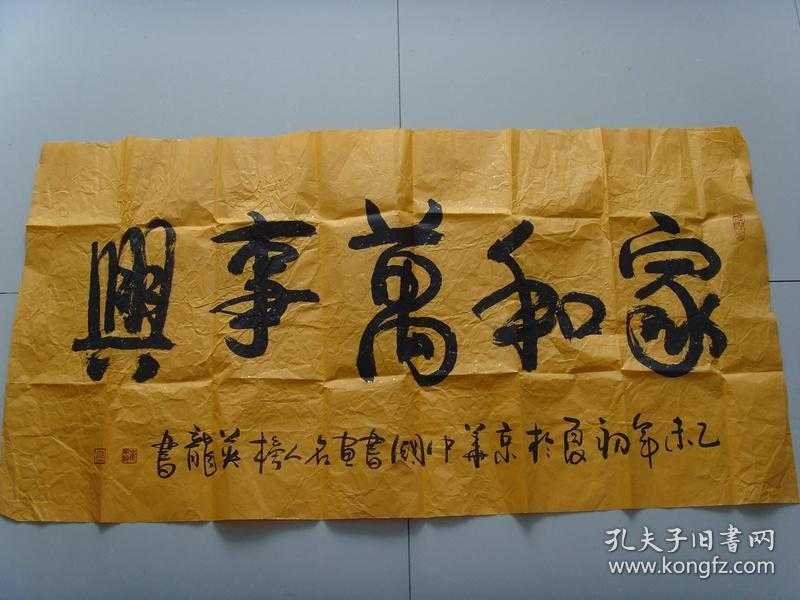 家和萬事興
乙未年初夏於京華中國書畫名人榜英龍書
孔夫子旧書网
www.kongfz.com